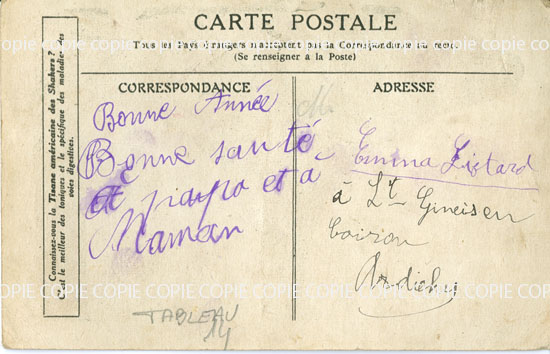 CARTE POSTALE
Tous les Pays étrangers n'acceptent pas la Correspondance au recto.
(Se renseigner à la Poste)
Connaissez-vous la Tisane américaine des Shakers ?
C'est le meilleur des toniques et le spécifique des maladies des
voies digestives.
CORRESPONDANCE
Bonne Année
Bonne santé
et à
Maman
ADRESSE
Emma
à St
TABLEAU
14
COPIE COPIE COPIE COPIE COPIE COPIE COPIE COPIE COPIE
COPIE COPIE COPIE COPIE COPIE COPIE COPIE COPIE COPIE
COPIE COPIE COPIE COPIE COPIE COPIE COPIE COPIE COPIE